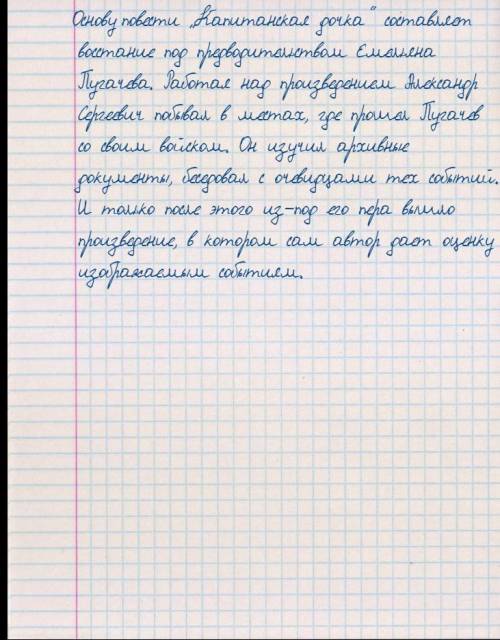 Основу повести „Капитанская дочка" составляет
восстание под предводительством Емельяна
Пугачева. Работая над произведением Александр
Сергеевич побывал в местах, где прошел Пугачев
со своим войском. Он изучил архивные
документы, беседовал с очевидцами тех событий.
И только после этого из-под его пера вышло
произведение, в котором сам автор дает оценку
изображаемым событиям.